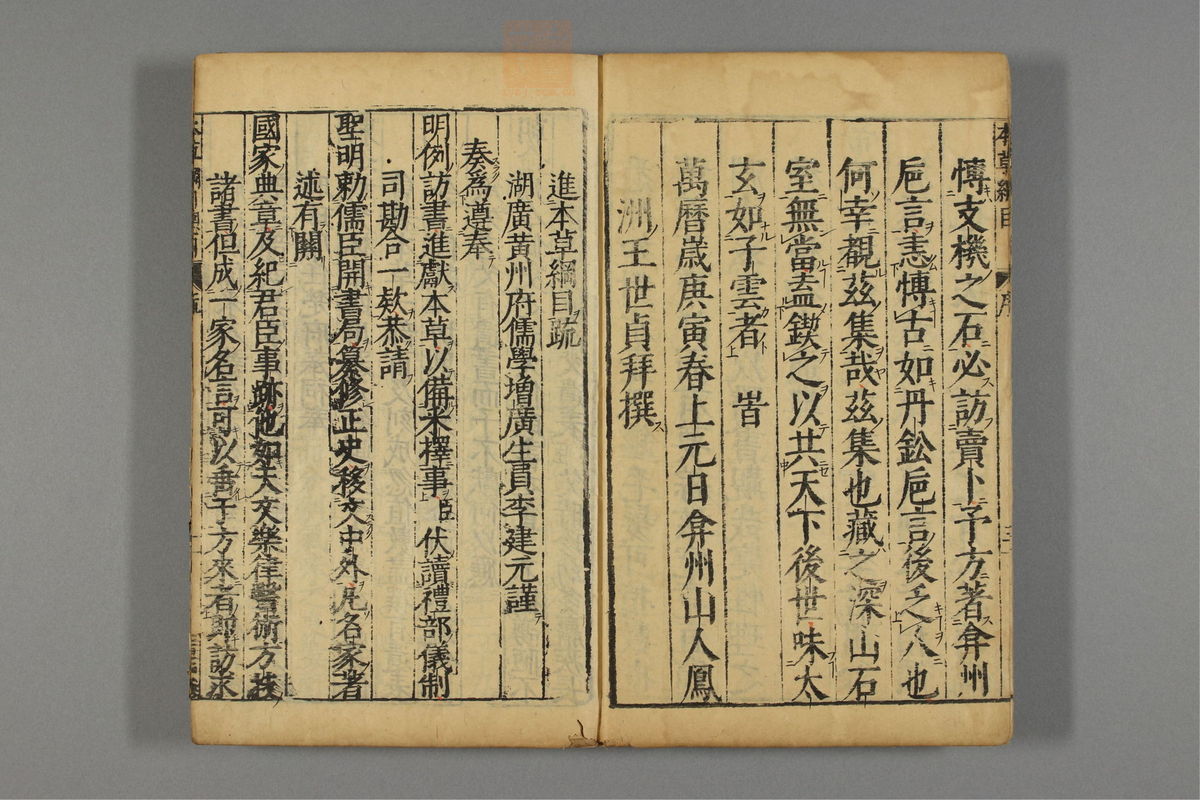 本草綱目 序
慱支機之石必訪賣卜予方著弇州
巵言恚慱古如丹鈆巵言後乏人也
何幸覩茲集哉茲集也藏之深山石
室無當盍鍥之以共天下後世味太
玄如子雲者 旹
萬曆歳庚寅春上元日弇州山人鳳
洲王世貞拜撰
進本草綱目疏
湖廣黄州府儒學增廣生員李建元謹
奏爲遵奉
明例訪書進獻本草以備采擇事臣伏讀禮部儀制
司勘合一欵恭請
聖明勅儒臣開書局纂修正史移文中外凡名家著
述有關
國家典章及紀君臣事跡他如天文樂律醫術方技
諸書但成一家名言可以垂于方來者即訪求